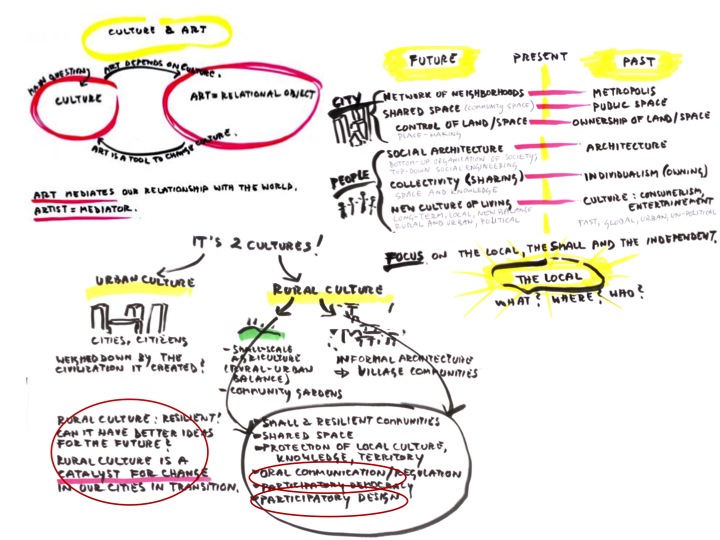 CULTURE & ART
MAIN QUESTION
ART DEPENDS ON CULTURE.
CULTURE
ART = RELATIONAL OBJECT
ART IS A TOOL TO CHANGE CULTURE.
ART MEDIATES OUR RELATIONSHIP WITH THE WORLD.
ARTIST = MEDIATOR.
FUTURE PRESENT PAST
CITY
NETWORK OF NEIGHBORHOODS METROPOLIS
SHARED SPACE (COMMUNITY SPACE) PUBLIC SPACE
CONTROL OF LAND/SPACE OWNERSHIP OF LAND/SPACE
PLACE-MAKING
PEOPLE
SOCIAL ARCHITECTURE ARCHITECTURE
BOTTOM-UP ORGANISATION OF SOCIETY,
TOP-DOWN SOCIAL ENGINEERING
COLLECTIVITY (SHARING) INDIVIDUALISM (OWNING)
SPACE AND KNOWLEDGE
NEW CULTURE OF LIVING CULTURE: CONSUMERISM,
ENTERTAINEMENT
LONG-TERM, LOCAL, NEW BALANCE
RURAL AND URBAN, POLITICAL FAST, GLOBAL, URBAN, UN-POLITICAL
FOCUS ON THE LOCAL, THE SMALL AND THE INDEPENDENT.
THE LOCAL
WHAT? WHERE? WHO?
IT'S 2 CULTURES!
URBAN CULTURE
CITIES, CITIZENS
WEIGHED DOWN BY THE
CIVILIZATION IT CREATED?
RURAL CULTURE
- SMALL-SCALE
AGRICULTURE
(RURAL-URBAN
BALANCE)
- COMMUNITY GARDENS
INFORMAL ARCHITECTURE
⇒ VILLAGE COMMUNITIES
RURAL CULTURE: RESILIENT!
CAN IT HAVE BETTER IDEAS
FOR THE FUTURE?
RURAL CULTURE IS A
CATALYST FOR CHANGE
IN OUR CITIES IN TRANSITION.
- SMALL & RESILIENT COMMUNITIES
- SHARED SPACE
- PROTECTION OF LOCAL CULTURE,
KNOWLEDGE, TERRITORY
- ORAL COMMUNICATION/REGULATION
- PARTICIPATORY DEMOCRACY
- PARTICIPATORY DESIGN